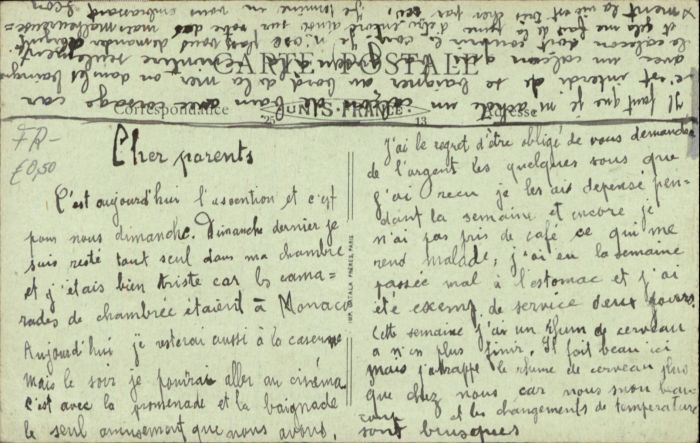 CARTE POSTALE
Correspondance
TUNIS-FRANCE
25
13
Adresse
FR-
€0,50
Cher parents
C'est aujourd'hui l'asontion et c'est
pour nous dimanche. Dimanche dernier je
suis resté tout seul dans ma chambre
et j'étais bien triste car les cama=
rades de chambrée étaient à Monaco
Aujourd'hui je resterai aussi à la caserne
mais le soir je pourrai aller au cinéma
c'est avec la promenade et la baignade
le seul amusement que nous avons.
J'ai le regret d'être obligé de vous demander
de l'argent les quelques sous que
j'ai reçu je les ais depensé pen-
dant la semaine et encore je
n'ai pas pris de café ce qui me
rend malade, j'ai eu la semaine
passée mal à l'estomac et j'ai
été exemp. de service deux jours.
Cette semaine j'ai un rhum de cerveau
a n'en plus finir. Il fait beau ici
mais j'attrappe le rhume de cerveau plus
que chez nous car nous suon beau
coup et les changements de temperature
sont brusques
Il faut que je m'achète un caleçon de bain avec corsage car
c'est interdi de se baigner au bord de la mer on dans les baignoires
avec un caleçon qui
le caleçon doit couvrir le corps je n'ose pas vous demander
et cela me fais de la peine d'être entend ainsi sur votre dos mais malheureuse=
ment la vie est très cher par ici, je termine en vous embrassant